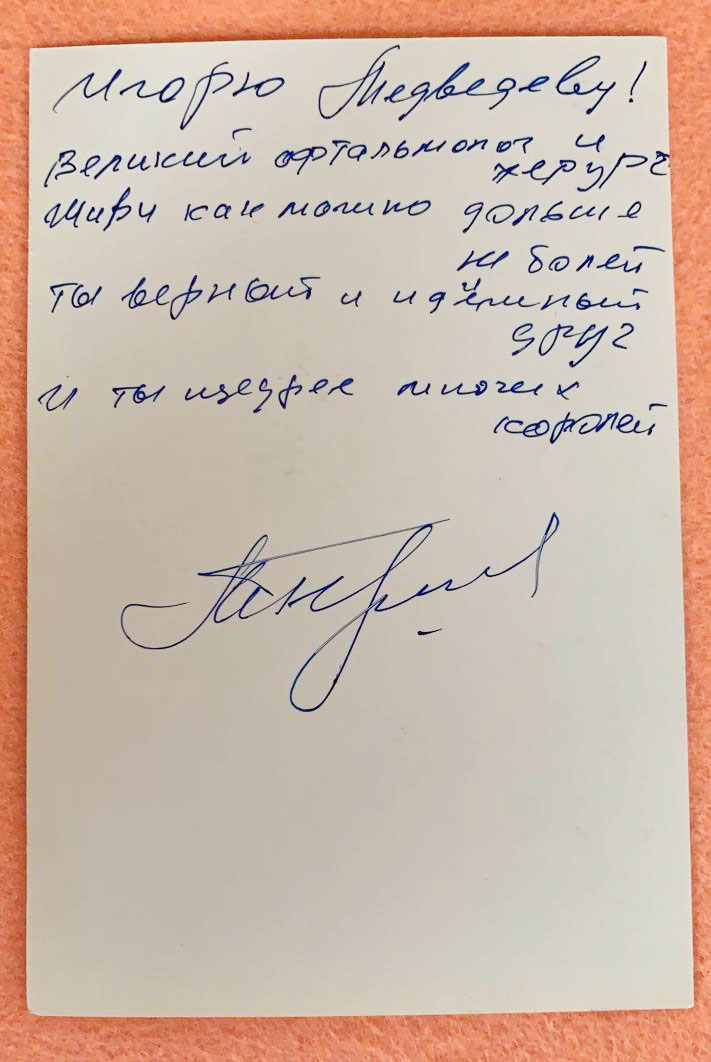 Игорю Медведеву!
Великий офтальмолог и
херург
Живи как можно дольше
не болей
Ты верный и идейный
друг
И ты щедрее многих
королей